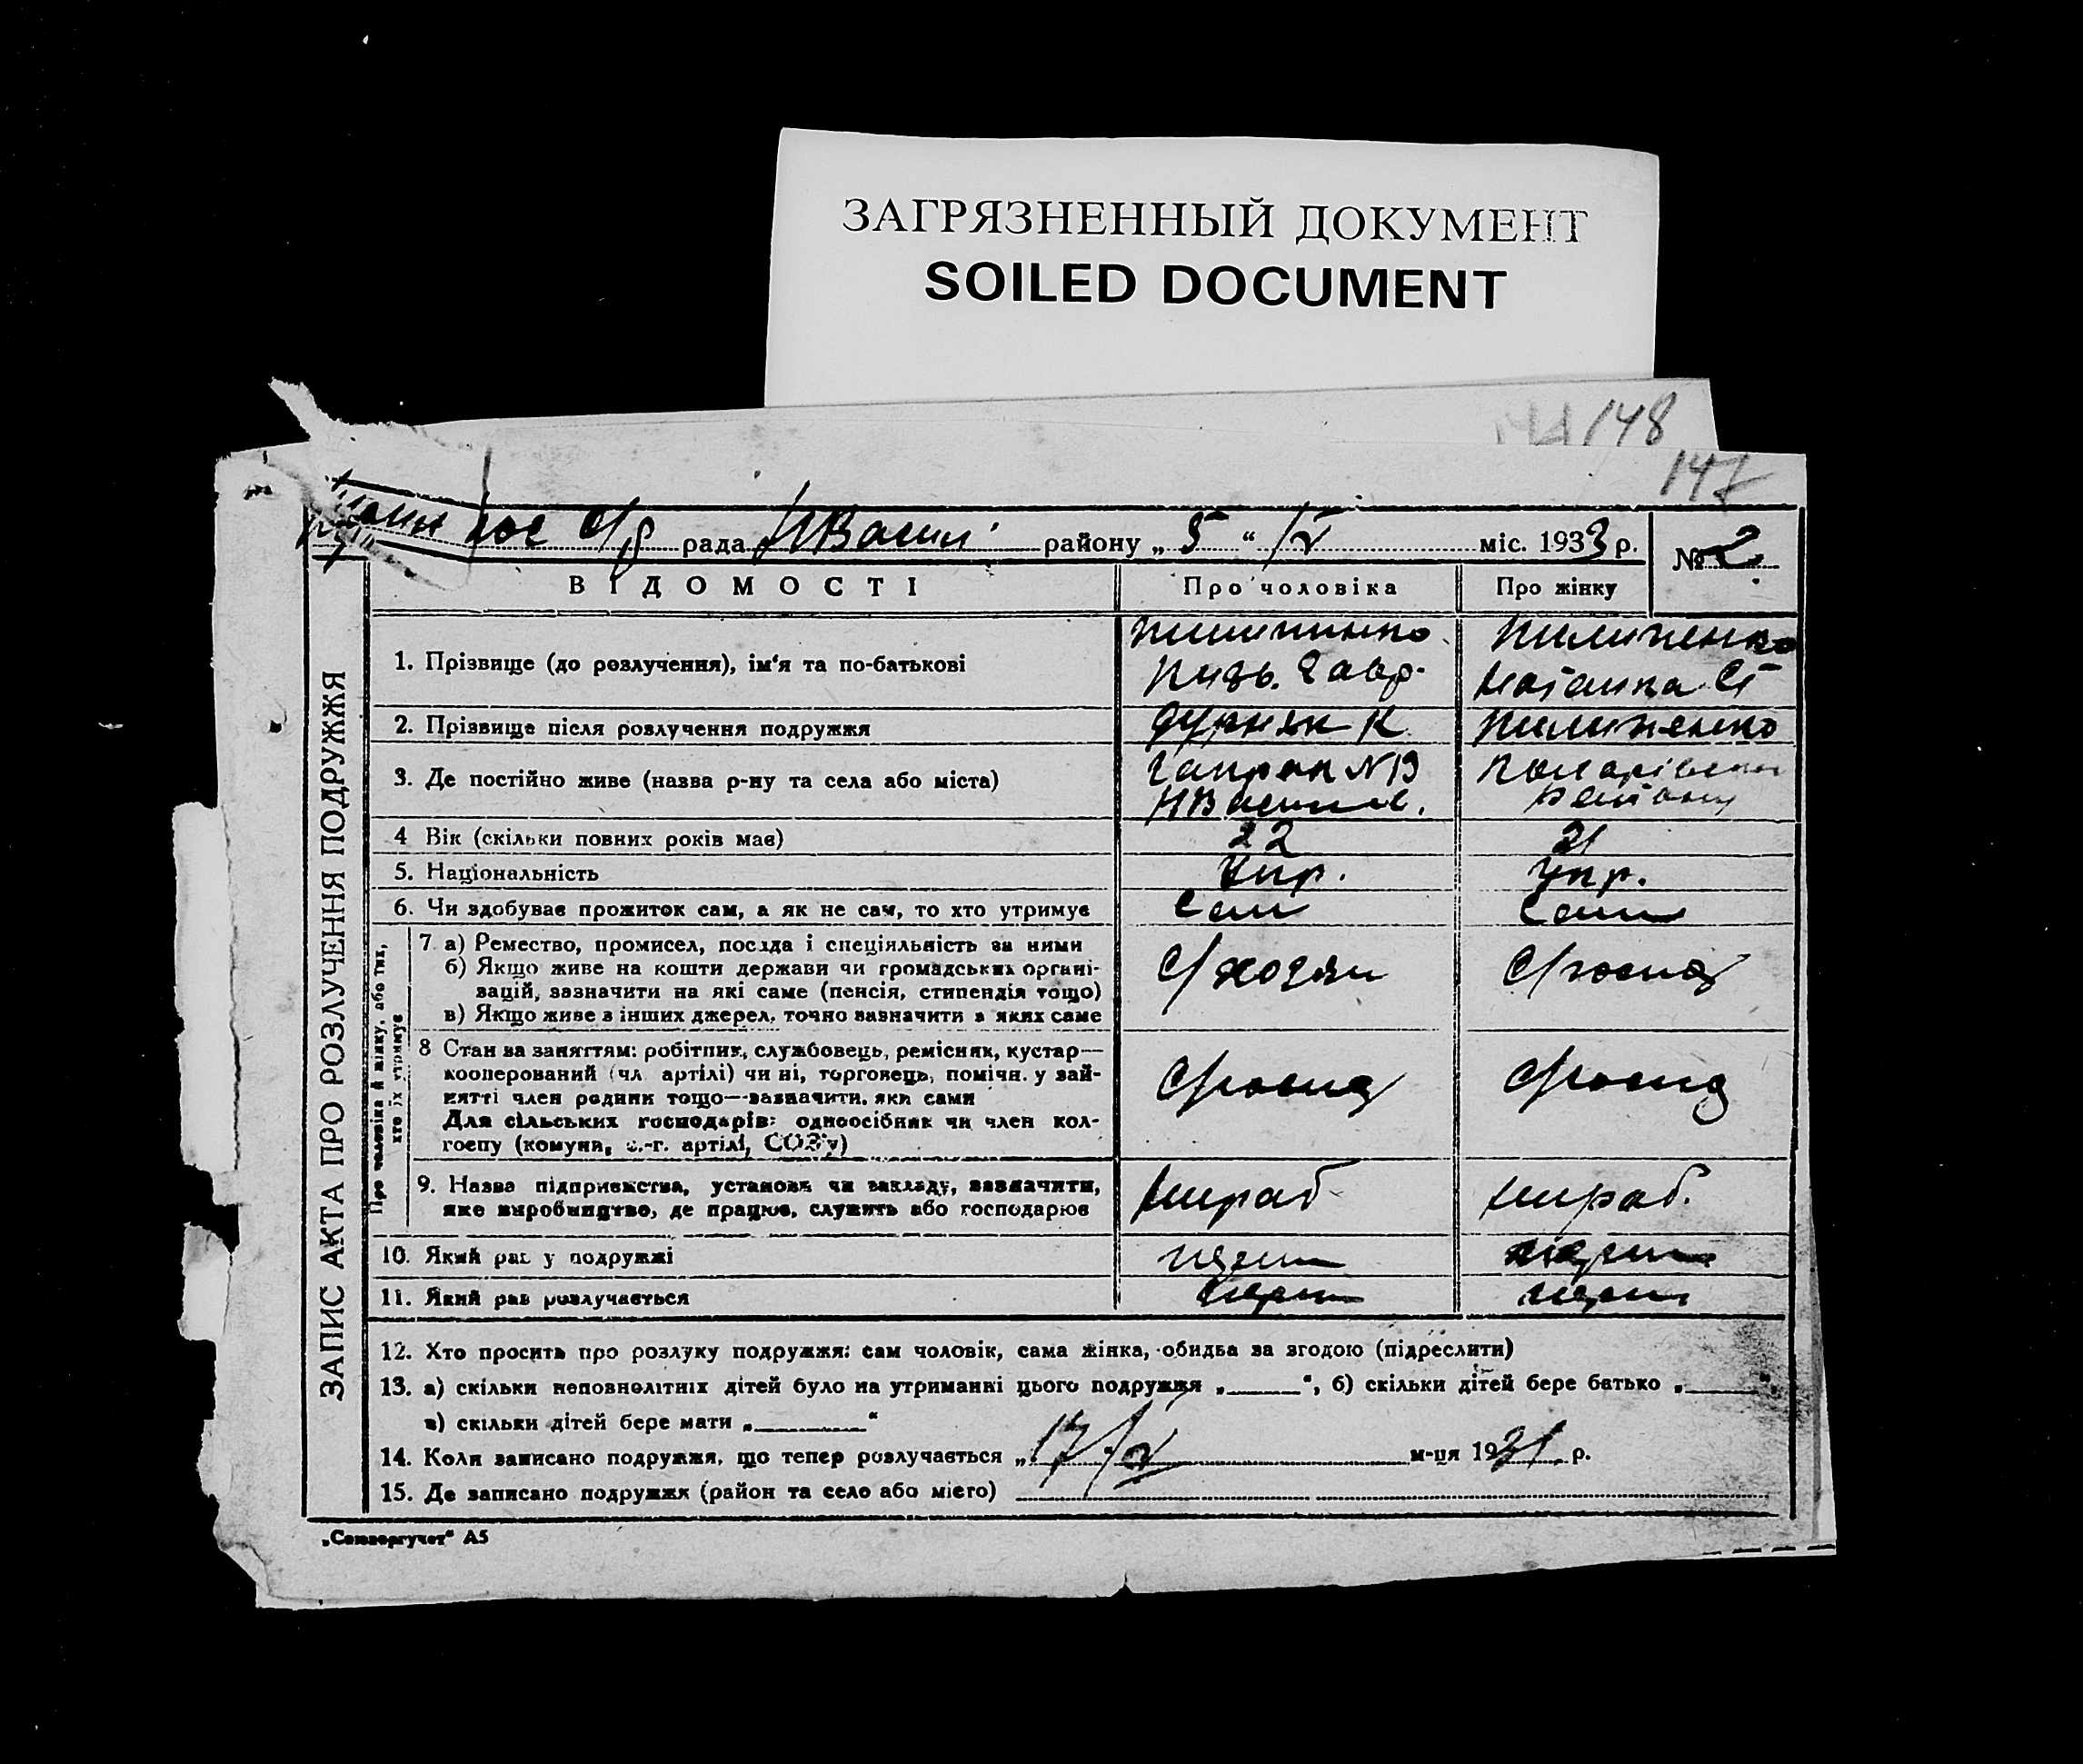 ЗАГРЯЗНЕННЫЙ ДОКУМЕНТ
SOILED DOCUMENT
148
147
с/р рада НВасил району „ 5 “ IV міс. 1933 р.
№ 2
ЗАПИС АКТА ПРО РОЗЛУЧЕННЯ ПОДРУЖЖЯ
ВІДОМОСТІ Про чоловіка Про жінку
1. Прізвище (до розлучення), ім'я та по-батькові
Пилипенко
2. Прізвище після розлучення подружжя
Пилипенко
3. Де постійно живе (назва р-ну та села або міста)
4 Вік (скільки повних років має) 22 21
5. Національність Укр. Укр.
6. Чи здобуває прожиток сам, а як не сам, то хто утримує Сам Сама
Про чоловіка й жінку, або тих, хто їх утримує
7 а) Ремество, промисел, посада і спеціяльність за ними
б) Якщо живе на кошти держави чи громадських органі-
зацій, зазначити на які саме (пенсія, стипендія тощо)
в) Якщо живе з інших джерел, точно зазначити з яких саме
8 Стан за заняттям: робітник, службовець, ремісник, кустар—
кооперований (чл. артілі) чи ні, торговець, помічн. у зай-
нятті член родини тощо—зазначити, яки сами
Для сільських господарів: одноосібник чи член кол-
госпу (комуни, с.-г. артілі, СОЗ'у)
9. Назва підприємства, установи чи закладу, зазначити,
яке виробництво, де працює, служить або господарює
10. Який раз у подружжі перш перш
11. Який раз розлучається перш перш
12. Хто просить про розлуку подружжя: сам чоловік, сама жінка, обидва за згодою (підреслити)
13. а) скільки неповнолітніх дітей було на утриманні цього подружжя „ “, б) скільки дітей бере батько „ “,
в) скільки дітей бере мати „ “
14. Коли записано подружжя, що тепер розлучається „ 17/IV м-ця 1931 р.
15. Де записано подружжя (район та село або місто)
„Союзоргучет“ А5